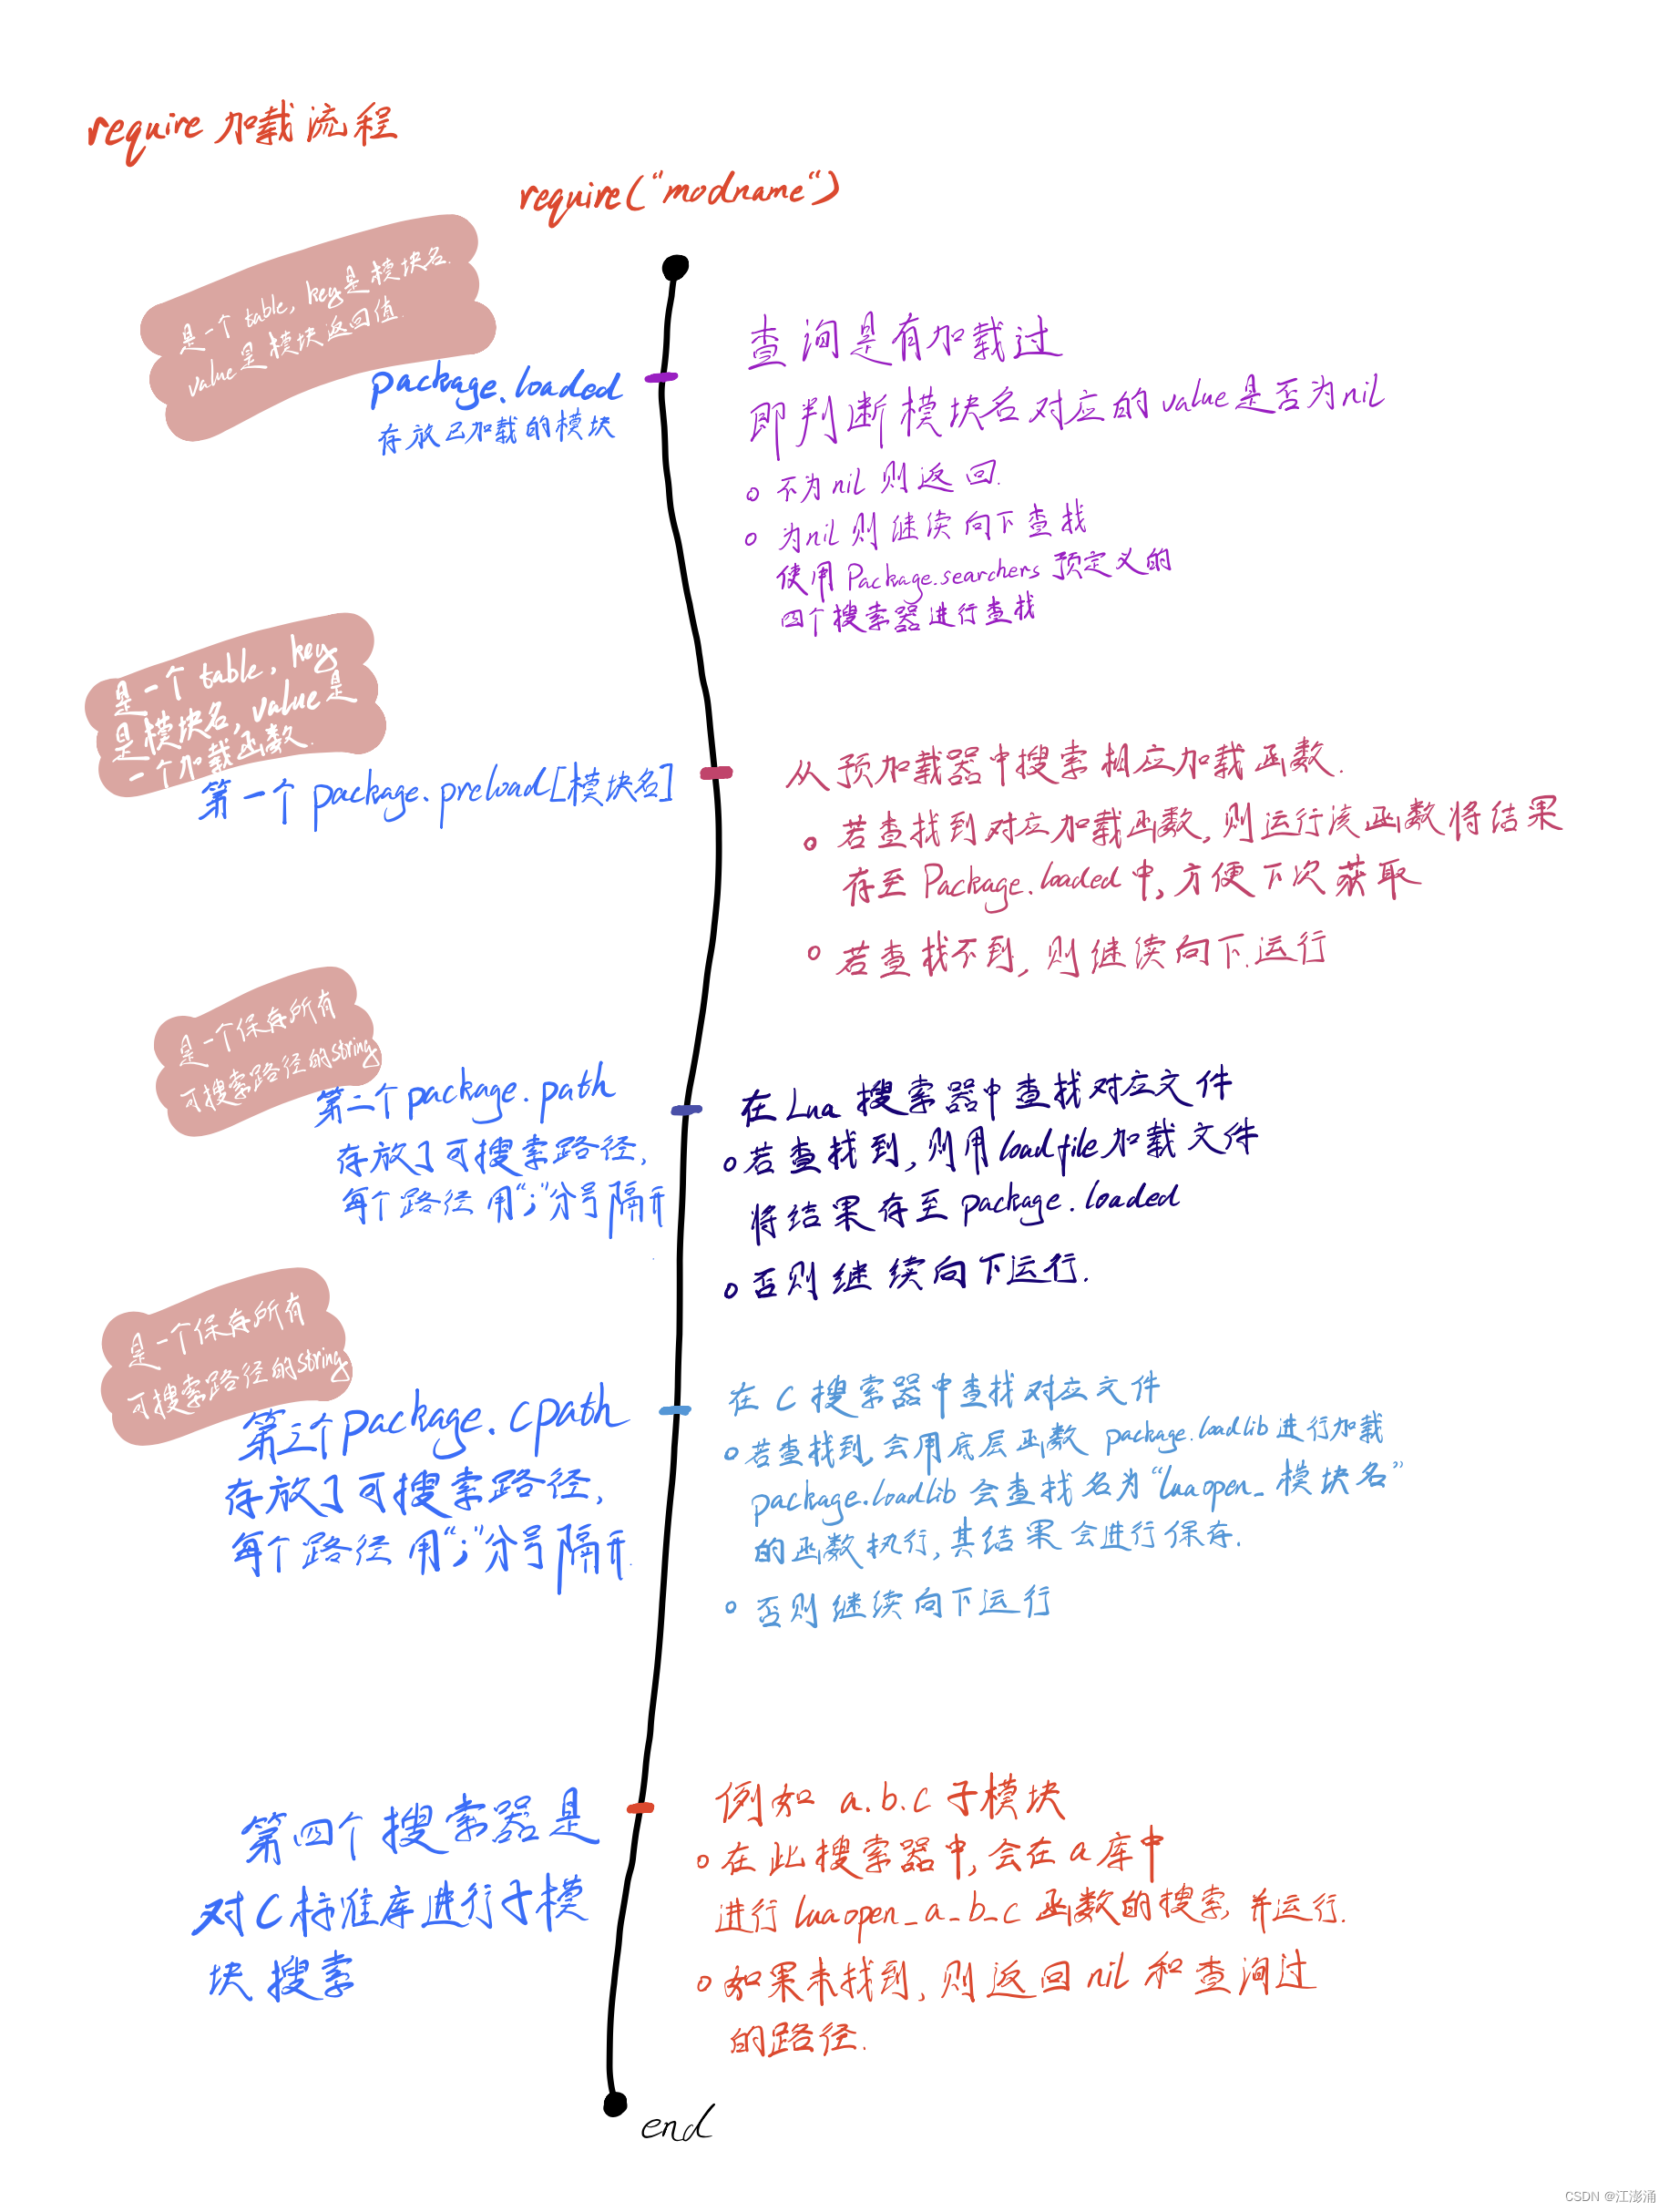 require 加载流程
require("modname")
是一个 table, key是模块名.
value是模块返回值.
package.loaded
存放已加载的模块
查询是有加载过
即判断模块名对应的value是否为nil
不为nil 则返回.
为nil 则继续向下查找
使用 Package.searchers 预定义的
四个搜索器进行查找
是一个 table, key
是模块名, value是
一个加载函数.
第一个 package.preload[模块名]
从预加载器中搜索相应加载函数.
若查找到对应加载函数, 则运行该函数将结果
存至 Package.loaded中, 方便下次获取
若查找不到, 则继续向下运行
是一个保存所有
可搜索路径的string
第二个package.path
存放了可搜索路径,
每个路径用“;”分号隔开
在Lua 搜索器中查找对应文件
若查找到, 则用loadfile加载文件
将结果存至package.loaded
否则继续向下运行.
是一个保存所有
可搜索路径的string
第三个package.cpath
存放了可搜索路径,
每个路径用“;”分号隔开.
在 C 搜索器中查找对应文件
若查找到, 会用底层函数 package.loadlib进行加载
package.loadlib会查找名为“luaopen_模块名”
的函数执行, 其结果会进行保存.
否则继续向下运行
第四个搜索器是
对C标准库进行子模
块搜索
例如 a.b.c 子模块
在此搜索器中, 会在a库中
进行 luaopen_a_b_c 函数的搜索, 并运行.
如果未找到, 则返回nil和查询过
的路径.
end
CSDN @江澎涌